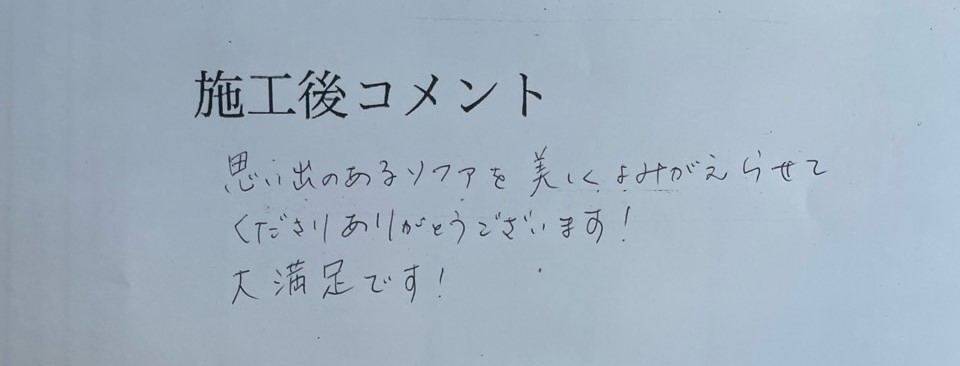 施工後コメント
思い出のあるソファを美しくよみがえらせて
くださりありがとうございます!
大満足です!